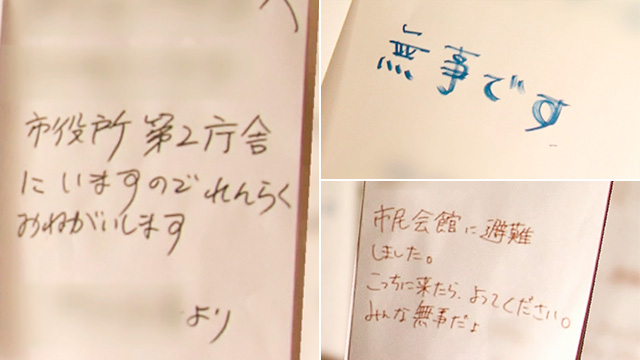 へ
市役所 第2庁舎
にいますのでれんらく
おねがいします
より
無事です
市民会館に避難
しました。
こっちに来たら、よってください。
みんな無事だよ